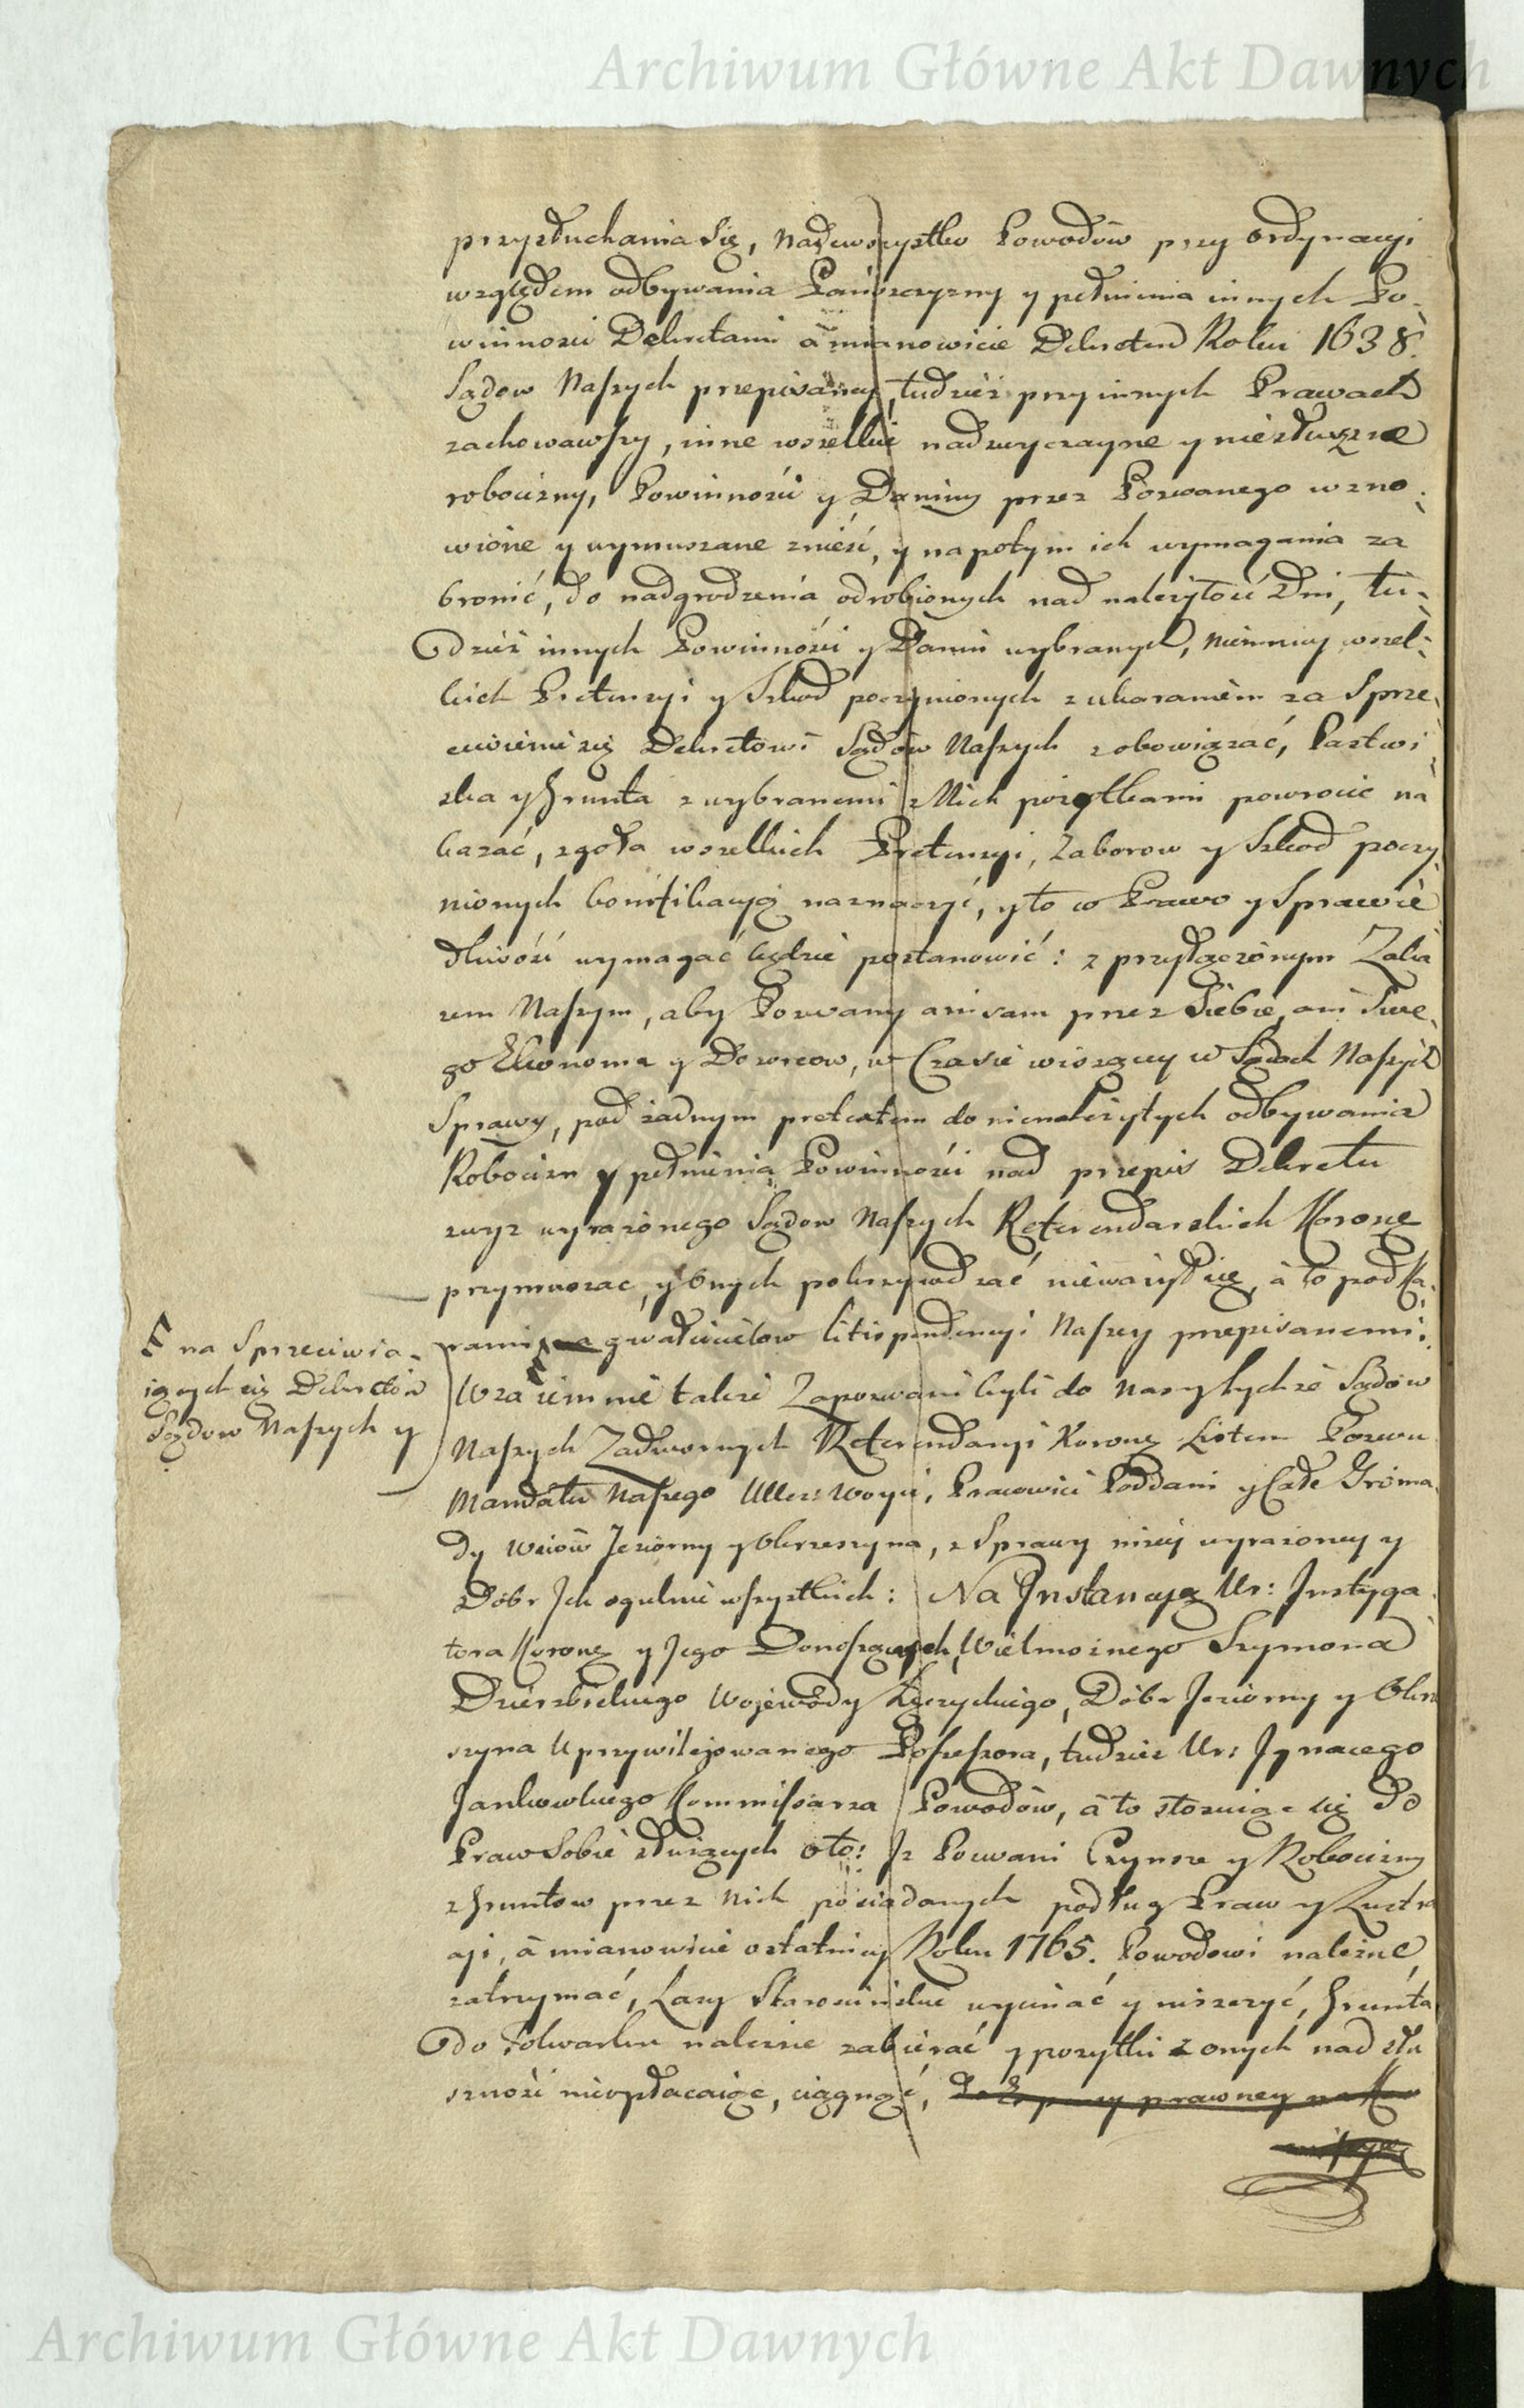 Archiwum Główne Akt Dawnych
przysłuchania się, nadewszystko Powodów przy ordynacyi
względem odbywania Pańszczyzny y pełnienia innych Po-
winnosci Dekretami à mianowicie Dekretem Roku 1638.
Sądow Naszych przepisaney, tudziesz przy innych Prawach
zachowawszy, inne wszelkie nadzwyczayne y niesłuszne
robocizny, Powinności y Daniny przez Pozwanego wzno-
wione y wymuszane znieść, y napotym ich wymagania za
bronić, do nadgrodzenia odrobionych nad należytość Dni, tu-
dzież innych Powinności y Danin wybranych, niemniey wszel-
kich Pretensyi y Szkod poczynionych z ukaraniem za Sprze-
ciwienie się Dekretowi Sądów Naszych zobowiązać, Pastwi-
ska y Grunta z wybranemi z Nich pożytkami powrocić na
kazać, zgoła wszelkich Pretensyi, Zaborow y Szkod poczy
nionych bonifikacyą naznaczyć, y to co Prawo y Sprawie
dliwość wymagać będzie postanowić: z przyłączonym Zaka
zem Naszym, aby Pozwany ani sam przez Siebie, ani Swe-
go Ekonoma y Dozorcow, w Czasie wiszącey w Sądach Naszych
Sprawy, pod żadnym pretextem do nienależytych odbywania
Robocizn y pełnienia Powinności nad przepis Dekretu
zwyż wyrażonego Sądow Naszych Referendarskich Koronę
przymuszac, y Onych pokrzywdzać nieważył się, à to pod Ka-
rami na gwałcicielow litispendencyi Naszey przepisanemi.
F na Sprzeciwia-
iących się Dekretów
Sądow Naszych y
Wzaiemnie także Zapozwani byli do naszych tychże Sądów
Naszych Zadwornych Referendaryi Koronę Listem Pozwu
Mandatu Naszego Woyci, Pracowici Poddani y Całe Groma
dy Wsiów Jeziorny y Okrzeszyna, z Sprawy niżey wyrażoney y
Dóbr Jch ogulnie wszystkich: Na Jnstancyą Ur: Jnstyga
tora Koronę y Jego Donoszących Wielmożnego Szymona
Dzierzbickiego Wojewody Łęczyckiego, Dóbr Jeziorny y Okrze
szyna Uprzywilejowanego Possessora, tudziesz Ur: Jgnacego
Jankowskiego Kommissarza Powodów, à to stosuiąc się do
Praw Sobie służących oto: Jż Pozwani Czynsze y Robocizny
z Gruntow przez Nich posiadanych podług Praw y Lustra
cyi, à mianowicie ostatniey Roku 1765. Powodowi należne
zatrzymać, Lasy Starościńskie wycinać y niszczyć, Grunta
do Folwarku należne zabierać y pożytki z onych nad słu
szność nieopłacaiąc, ciągnąć,
Archiwum Główne Akt Dawnych